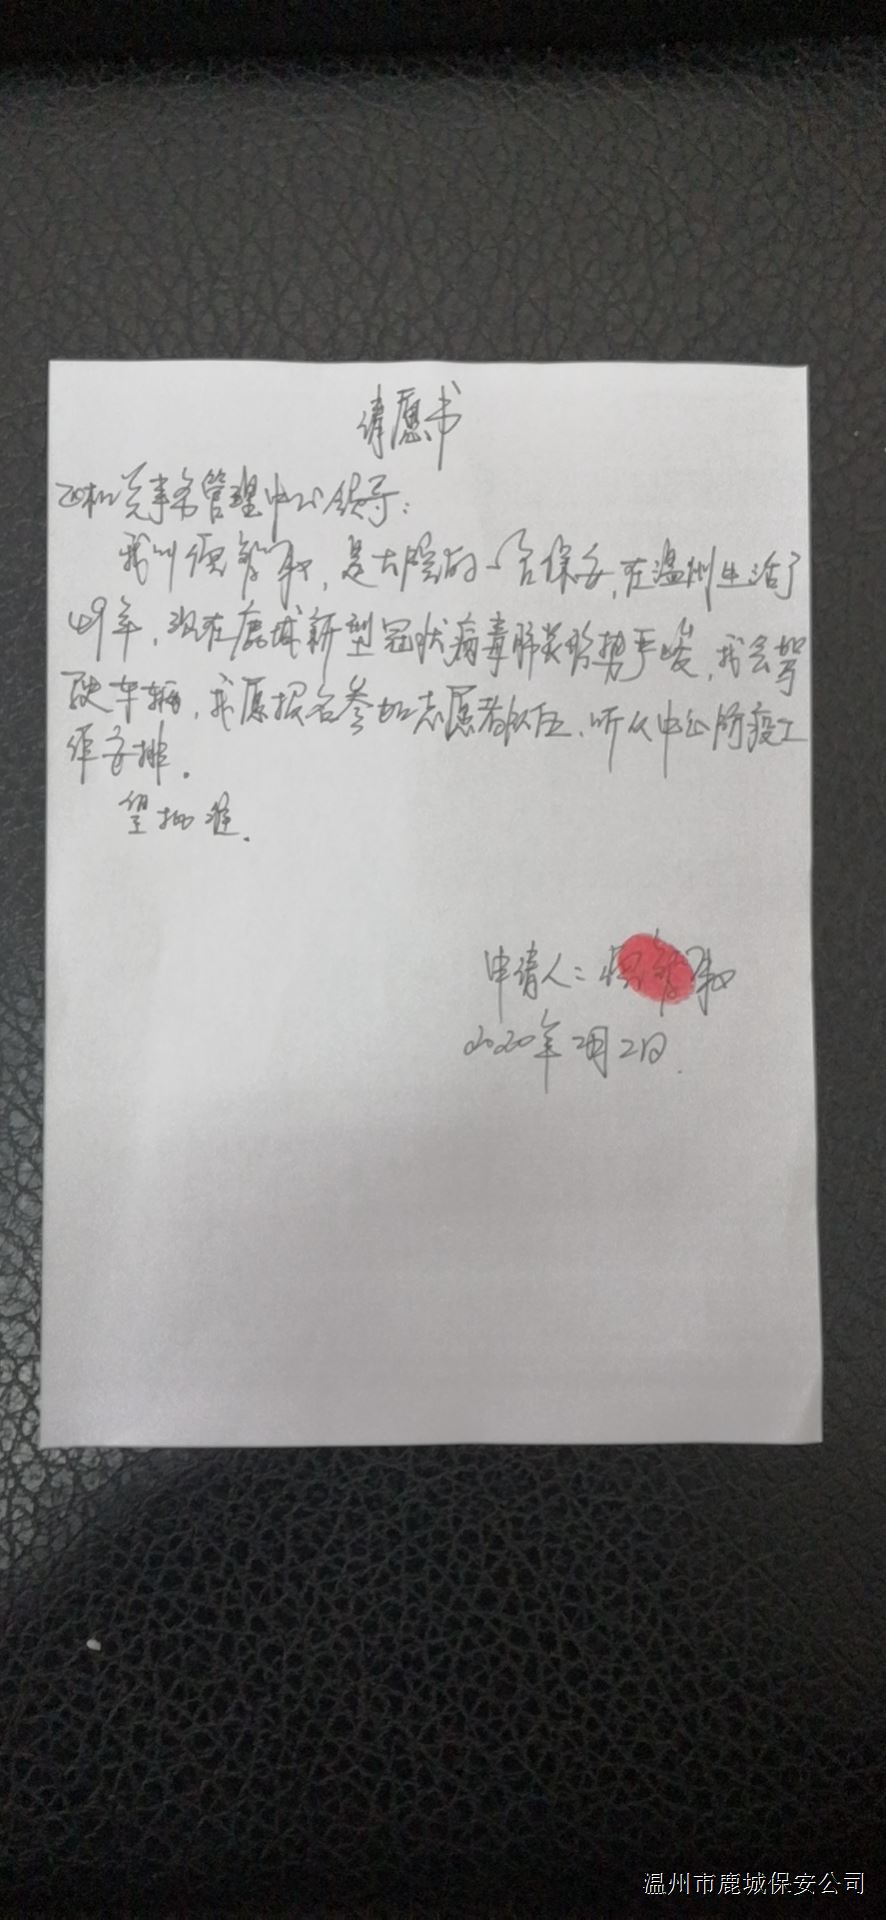 请愿书
区机关事务管理中心领导：
我叫，是大院的一名保安，在温州生活了
49年，现在鹿城新型冠状病毒肺炎形势严峻，我会驾
驶车辆，我愿报名参加志愿者队伍、听从中心防疫工
作安排．
望批准．
申请人：
2020年2月2日．
温州市鹿城保安公司